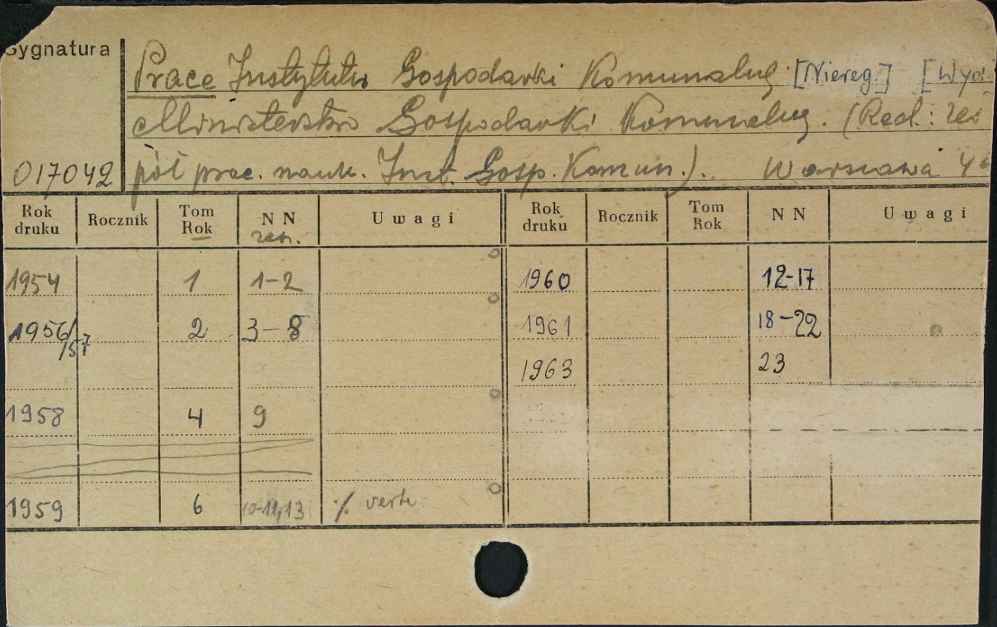 Sygnatura
Prace Instytutu Gospodarki Komunalnej [Niereg.] [Wyd.
Ministerstwo Gospodarki Komunalnej. (Red.: zes
017042 pół prac. nauk. Inst. Gosp. Komun.). Warszawa
Rok druku Rocznik Tom Rok NN zesz. Uwagi Rok druku Rocznik Tom Rok NN Uwagi
1954 1 1-2 1960 12-17
1956/57 2 3-8 1961 18-22
1963 23
1958 4 9
1959 6 10-11, 13 ./. verte